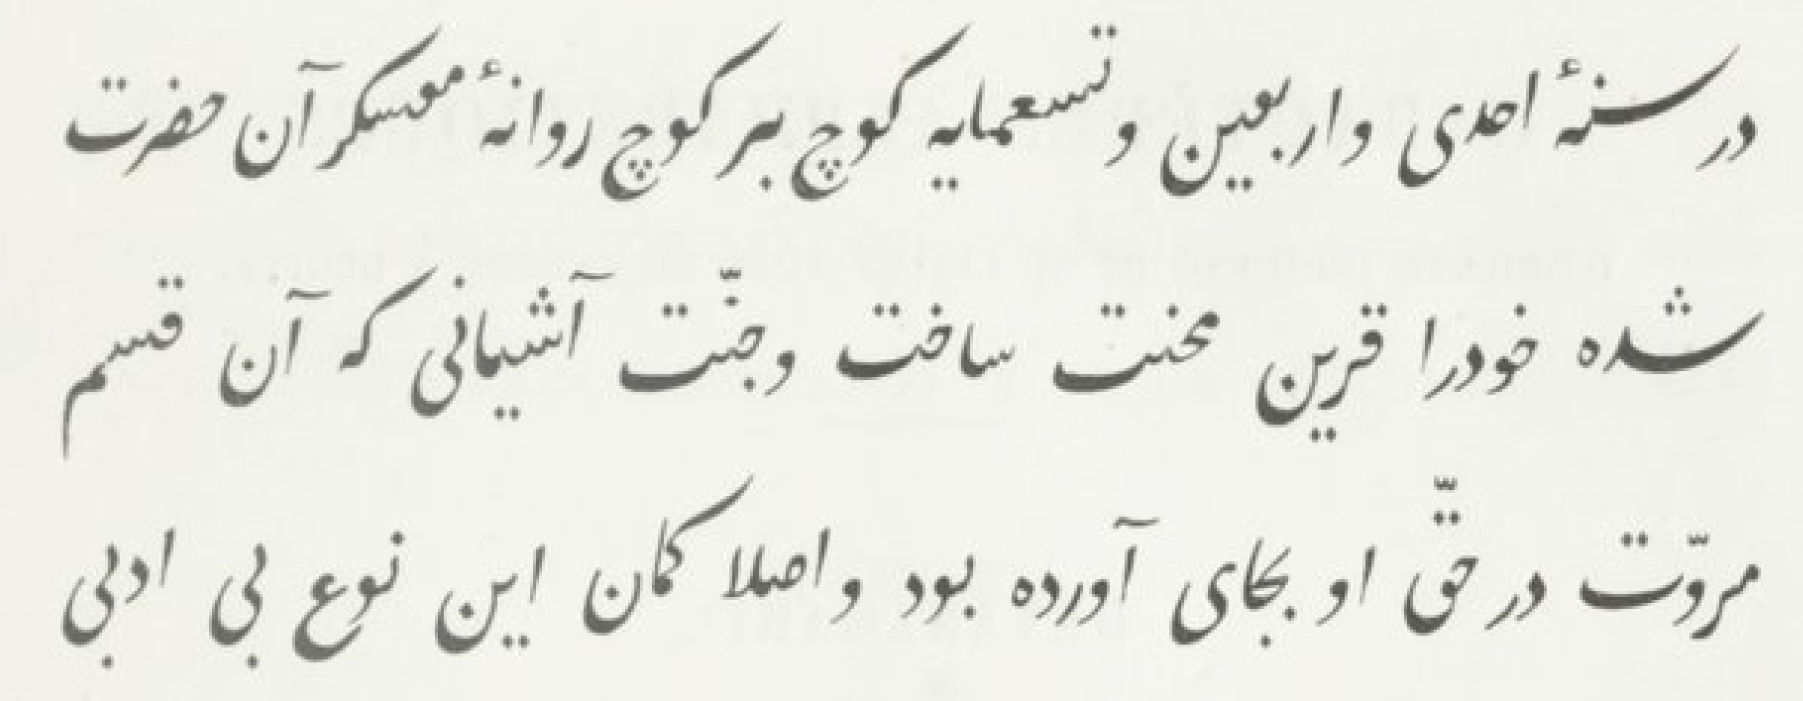 در سنهٔ احدی و اربعین و تسعمایه کوچ بر کوچ روانهٔ معسکر آن حضرت
شده خودرا قرین محنت ساخت وجنّت آشیانی که آن قسم
مروّت در حقّ او بجای آورده بود و اصلا کمان این نوع بی ادبی